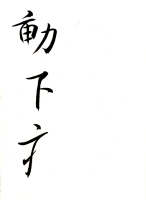 動下方